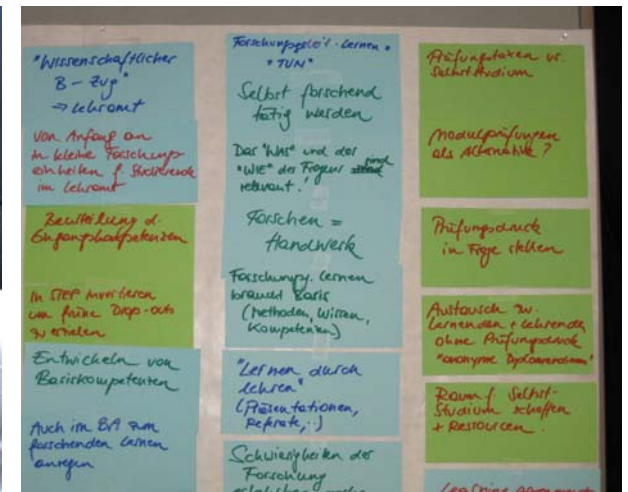 "Wissenschaftlicher
B-Zug"
→ Lehramt
von Anfang an
in kleine Forschungs
einheiten f. Studierende
im Lehramt
Beurteilung d.
Eingangskompetenzen
in STEP investieren
um frühe Drop-outs
zu erzielen
Entwickeln von
Basiskompetenzen
Auch im BA zum
forschenden Lernen
anregen
Forschungsgel't. Lernen =
"TUN"
Selbst forschend
tätig werden
Das "WAS" und das
"WIE" des Fragens sind
relevant!
Forschen =
Handwerk
Forschungsg. Lernen
braucht Basis
(Methoden, Wissen,
Kompetenzen)
"Lernen durch
Lehren"
(Präsentationen,
Referate,..)
Schwierigkeiten der
Forschung
Prüfungstaxen vs.
Selbststudium
Modulprüfungen
als Alternative?
Prüfungsdruck
in Frage stellen
Austausch zw.
Lernenden + Lehrenden
ohne Prüfungsdruck
Raum f. Selbst-
Studium schaffen
+ Ressourcen.